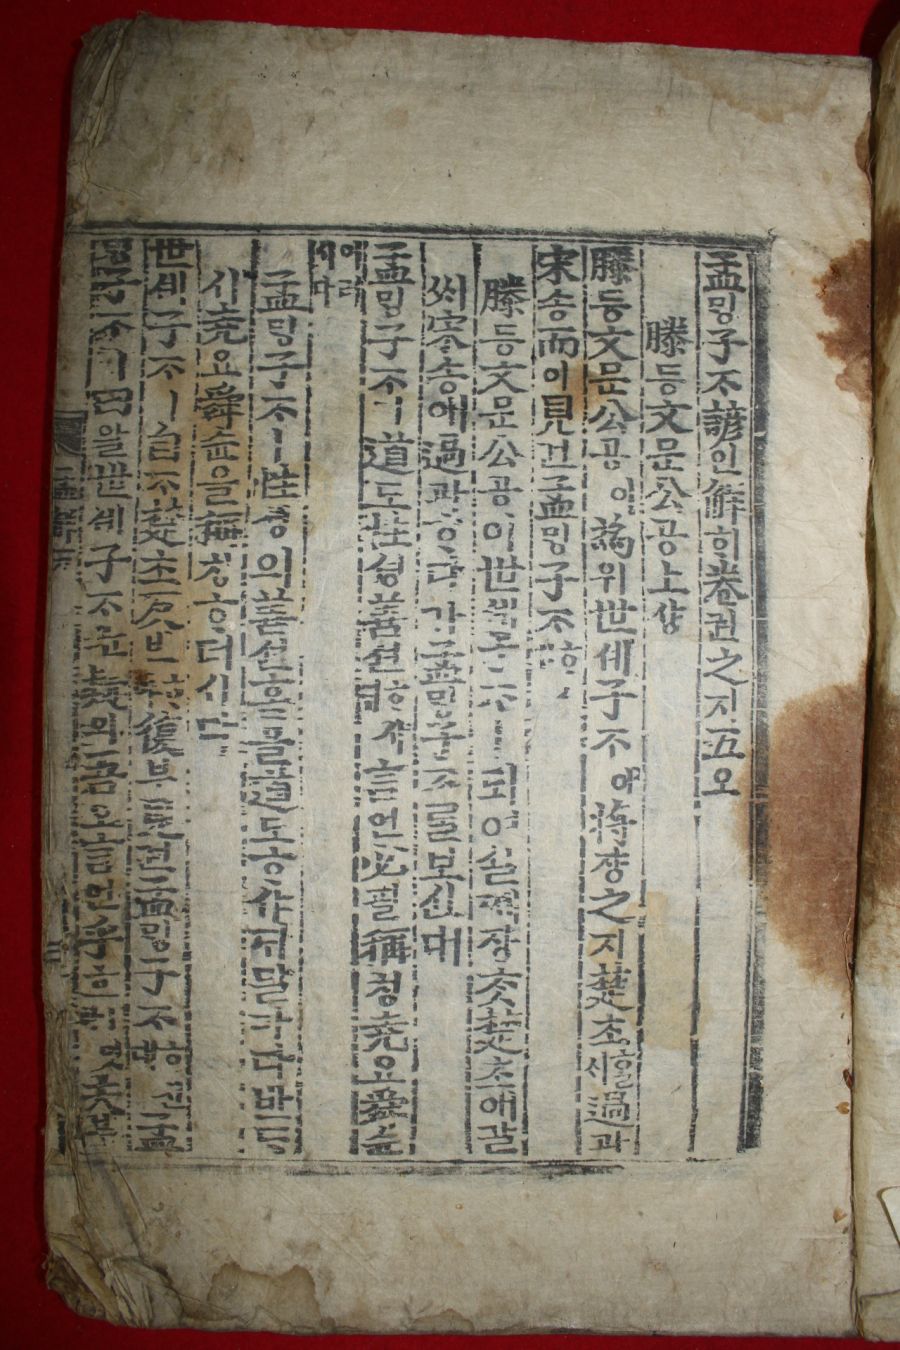 孟밍子ᄌᆞ諺언解ᄒᆡ卷권之지五오
滕등文문公공上샹
滕등文문公공이爲위世셰子ᄌᆞ애將쟝之지楚초ᄒᆞᆯᄉᆡ過과
宋송而이見견孟밍子ᄌᆞᄒᆞ
滕등文문公공이世셰子ᄌᆞㅣ되여실제쟝ᄎᆞᆺ楚초애갈
ᄉᆡ宋송애過과ᄒᆞ다가孟밍子ᄌᆞ를보신대
孟밍子ᄌᆞㅣ道도性셩善션ᄒᆞ샤ᄃᆡ言언必필稱칭堯요舜슌
이러시다
孟밍子ᄌᆞㅣ性셩의善션홈을道도ᄒᆞ샤ᄃᆡ말마다반ᄃᆞ
시堯요舜슌을稱칭ᄒᆞ더시다
世셰子ᄌᆞㅣ自ᄌᆞ楚초反반ᄒᆞ야復부見견孟밍子ᄌᆞᄒᆞᆫ대孟
밍子ᄌᆞㅣ曰왈世셰子ᄌᆞᄂᆞᆫ疑의吾오言언乎호잇가夫부